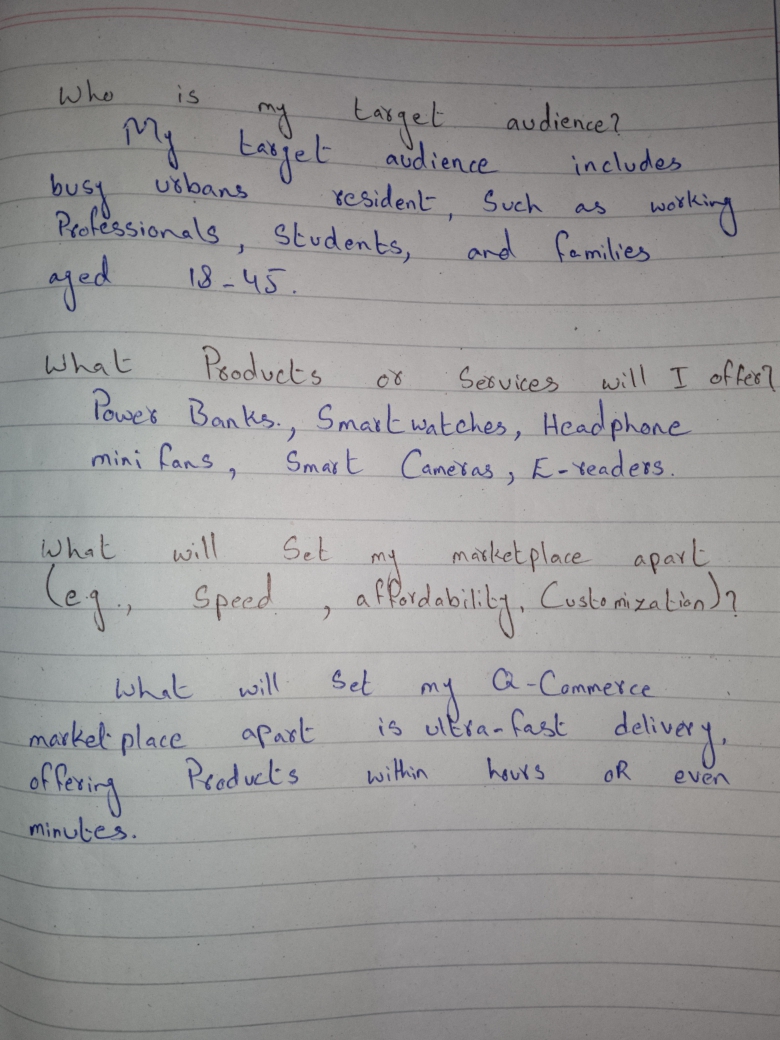 Who is my target audience?
My target audience includes
busy urbans resident, Such as working
Professionals, Students, and families
aged 18-45.
What Products or Services will I offer?
Power Banks., Smart watches, Headphone
mini fans, Smart Cameras, E-readers.
What will Set my marketplace apart
(e.g., Speed, affordability, Customization)?
What will Set my Q-Commerce
marketplace apart is ultra-fast delivery,
offering Products within hours OR even
minutes.